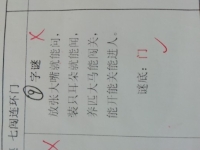 七闯连环门
⑨字谜
放张大嘴就能问，
装只耳朵就能闻，
养匹大马能闯关，
能开能关能进人。
谜底：门